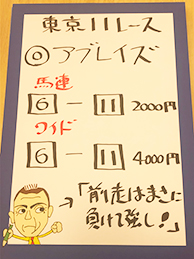 東京11レース
◎アブレイズ
馬連
6－11 2000円
ワイド
6－11 4000円
「前走はまさに
負けて強し!」